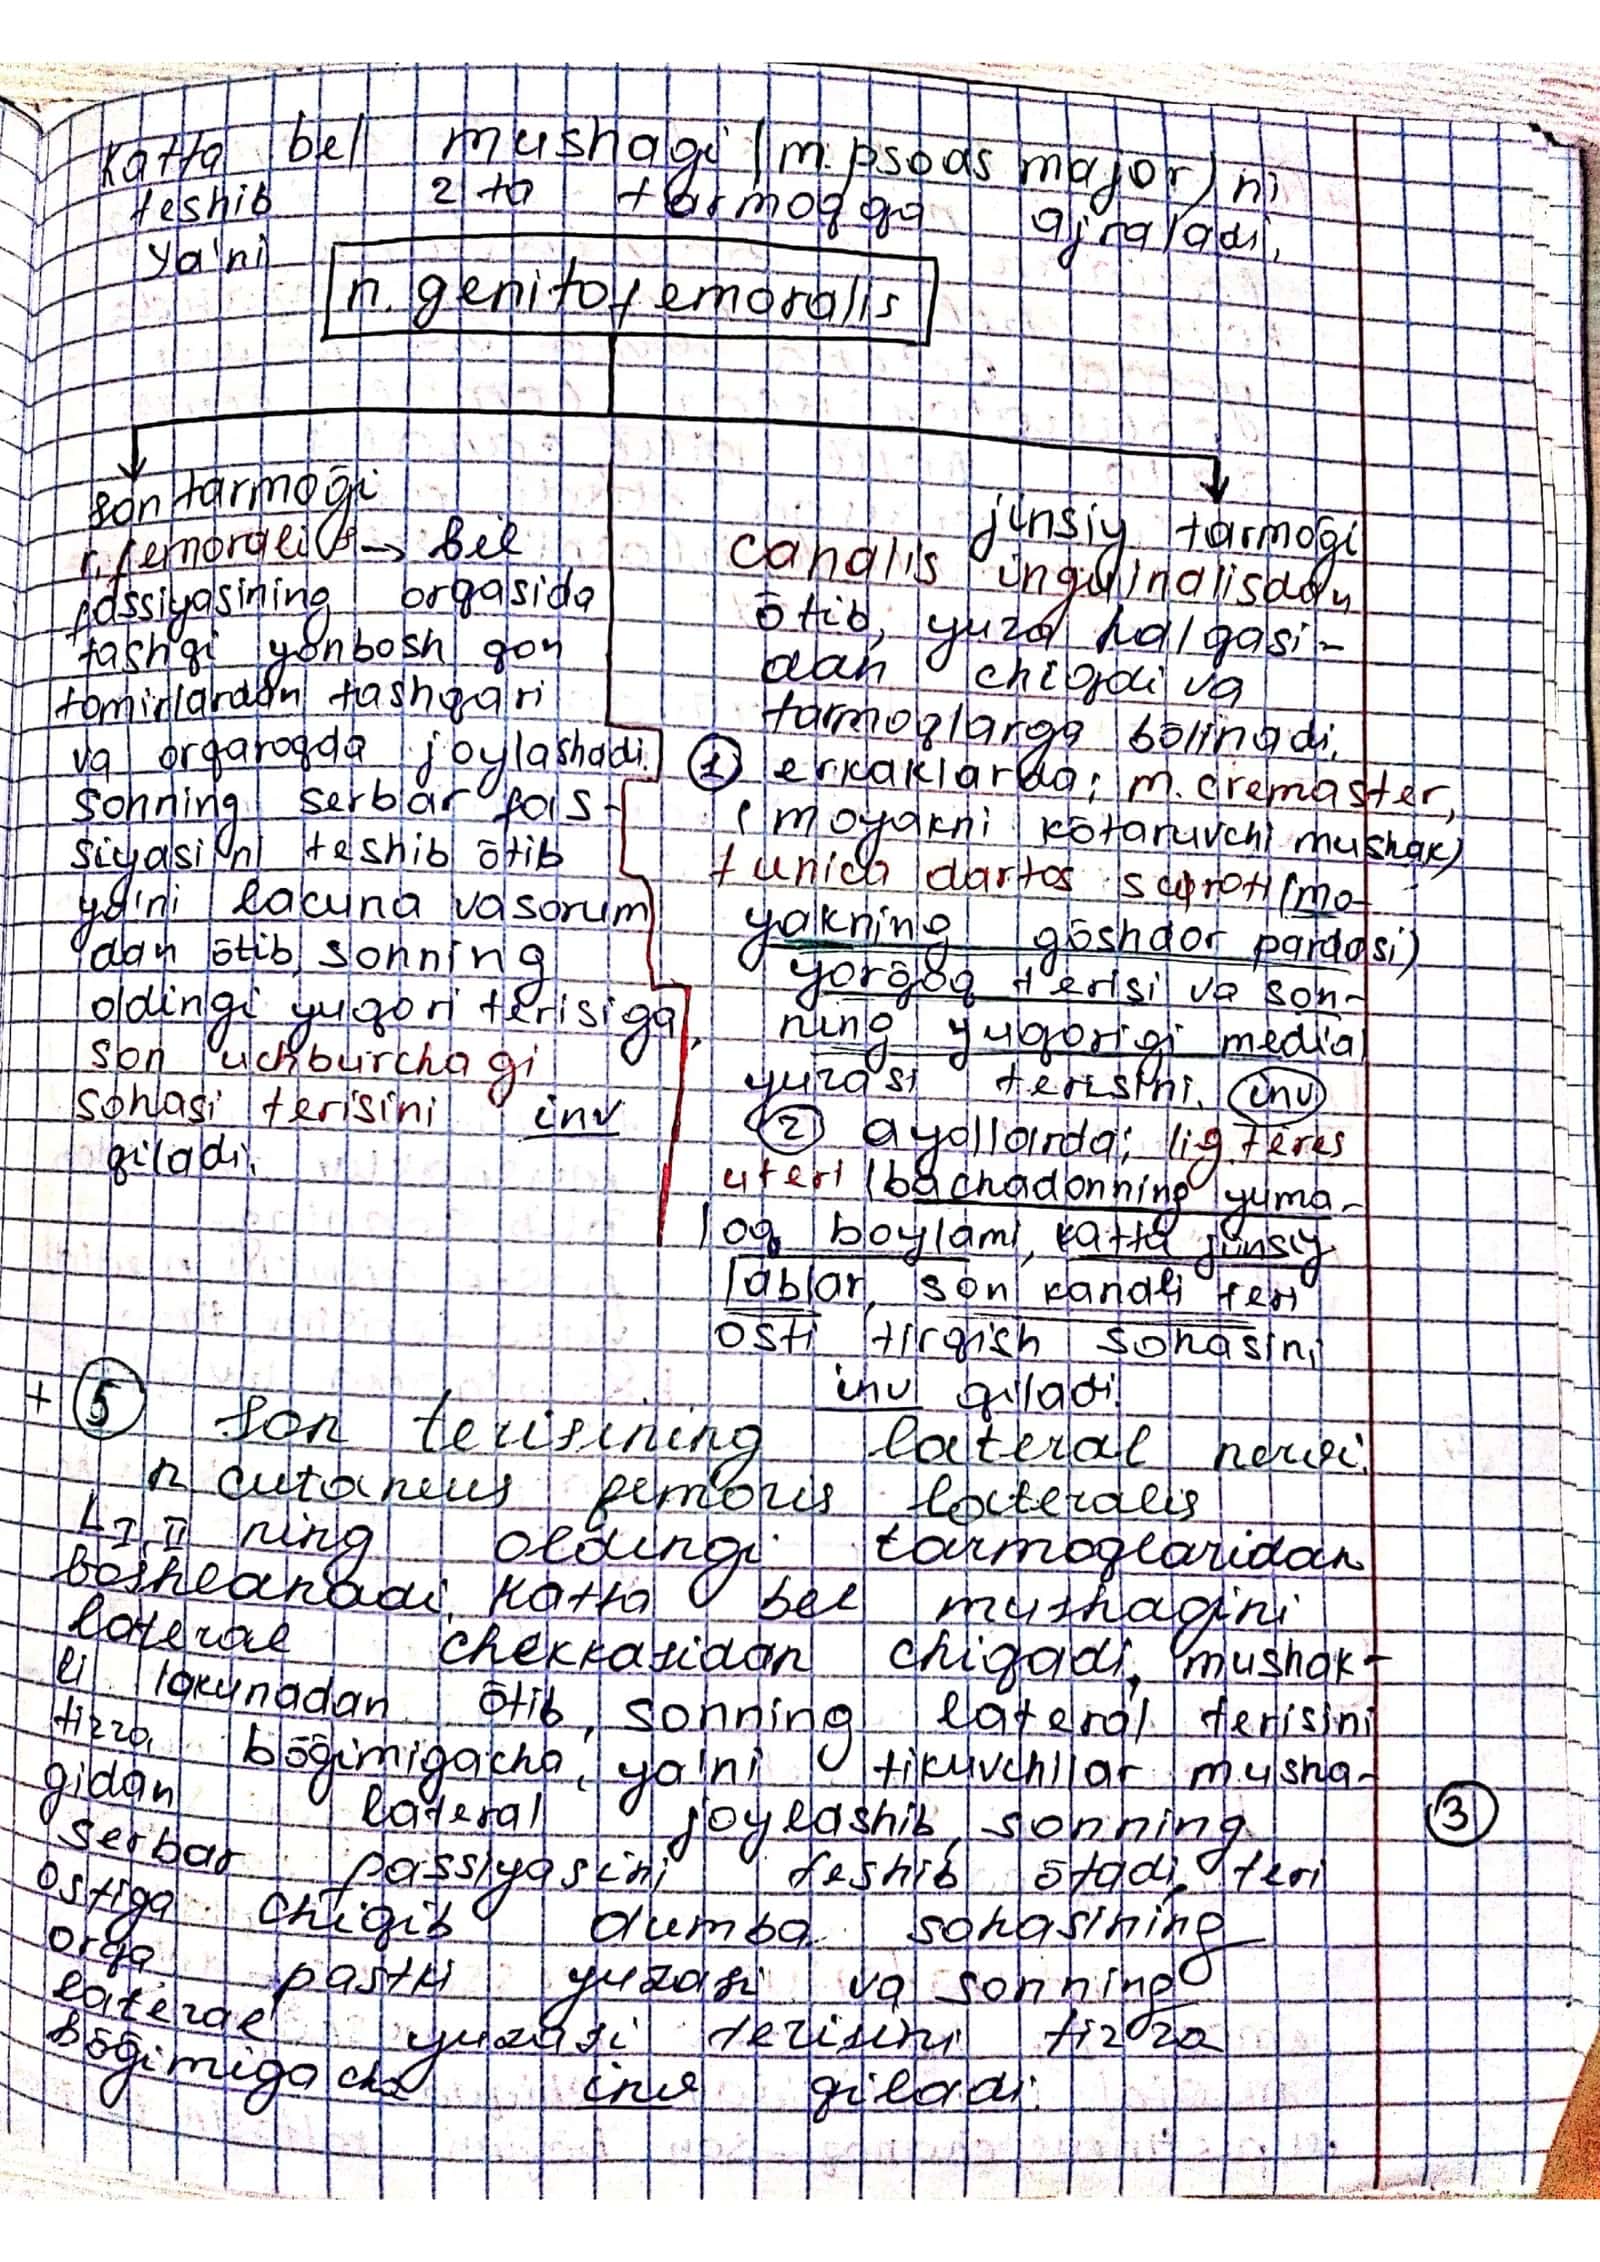 Katta bel mushagi (m.psoas major) ni
teshib 2 ta tarmoqqa ajraladi,
ya'ni
n. genitofemoralis
son tarmoḡi
r. femoralis → bel
fassiyasining orqasida
tashqi yonbosh qon
tomirlardan tashqari
va orqaroqda joylashadi.
Sonning serbar fas-
siyasini teshib ōtib
ya'ni lacuna vasorum
dan ōtib, sonning
oldingi yuqori terisiga,
son uchburchagi
sohasi terisini inv
qiladi.
jinsiy tarmoḡi
canalis inguinalisdan
ōtib, yuza halqasi-
dan chiqdi va
tarmoqlarga bōlinadi.
① erkaklarda; m. cremaster,
(moyakni kōtaruvchi mushak)
tunica dartos scproti (mo-
yakning gōshdor pardasi)
yorḡoq terisi va son-
ning yuqorigi medial
yuzasi terisini. inv
② ayollarda; lig. teres
uteri (bachadonning yuma-
loq boylami, katta jinsiy
lablar, son kanali teri
osti tirqish sohasini
inv qiladi.
+ ⑤ Son terisining lateral nervi.
n cutaneus femoris lateralis
L I, II ning oldingi tarmoqlaridan
boshlanadi, katta bel mushagini
lateral chekkasidan chiqadi, mushak-
li lakunadan ōtib, sonning lateral terisini
tizza bōḡimigacha, ya'ni tikuvchilar musha-
gidan lateral joylashib, sonning
serbar passiyasini teshib ōtadi, teri
ostiga chiqib dumba sohasining
orqa pastki yuzasi va sonning
lateral yuzasi terisini tizza
bōḡimigacha inv qiladi.
③